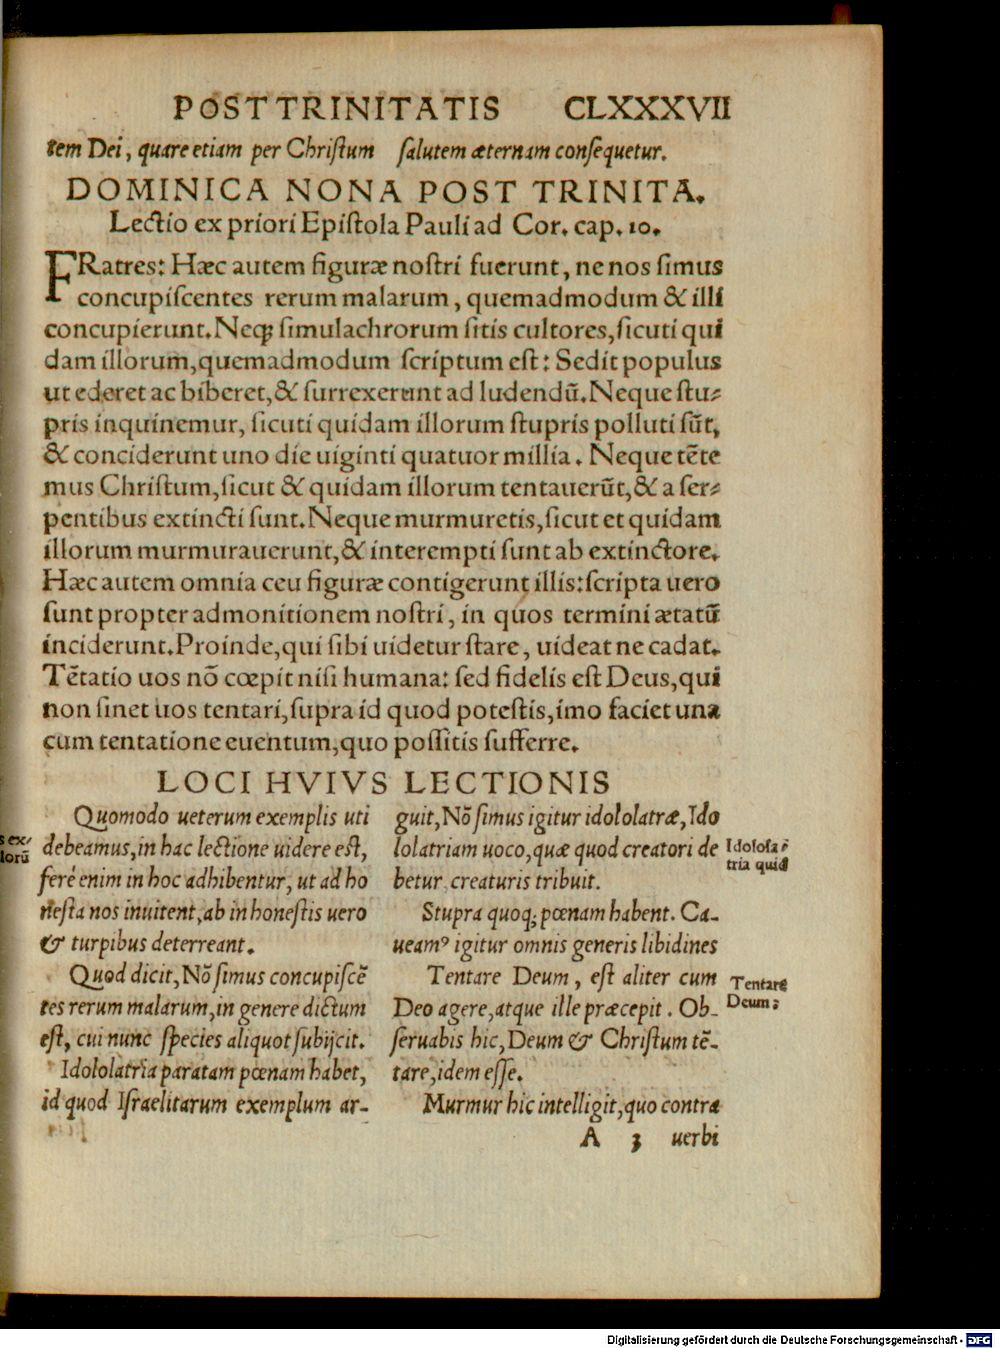 POST TRINITATIS CLXXXVII
tem Dei, quare etiam per Christum salutem æternam consequetur.
DOMINICA NONA POST TRINITA.
Lectio ex priori Epistola Pauli ad Cor. cap. 10.
FRatres: Hæc autem figuræ nostri fuerunt, ne nos simus
concupiscentes rerum malarum, quemadmodum & illi
concupierunt. Neq; simulachrorum sitis cultores, sicuti qui
dam illorum, quemadmodum scriptum est: Sedit populus
ut ederet ac biberet, & surrexerunt ad ludendũ. Neque stu-
pris inquinemur, sicuti quidam illorum stupris polluti sũt,
& conciderunt uno die uiginti quatuor millia. Neque tẽte
mus Christum, sicut & quidam illorum tentauerũt, & a ser-
pentibus extincti sunt. Neque murmuretis, sicut et quidam
illorum murmurauerunt, & interempti sunt ab extinctore.
Hæc autem omnia ceu figuræ contigerunt illis: scripta uero
sunt propter admonitionem nostri, in quos termini ætatũ
inciderunt. Proinde, qui sibi uidetur stare, uideat ne cadat.
Tẽtatio uos nõ cœpit nisi humana: sed fidelis est Deus, qui
non sinet uos tentari, supra id quod potestis, imo faciet una
cum tentatione euentum, quo possitis sufferre.
LOCI HVIVS LECTIONIS
Quomodo ueterum exemplis uti
debeamus, in hac lectione uidere est,
feré enim in hoc adhibentur, ut ad ho
nesta nos inuitent, ab inhonestis uero
& turpibus deterreant.
Quod dicit, Nõ simus concupiscẽ
tes rerum malarum, in genere dictum
est, cui nunc species aliquot subijcit.
Idololatria paratam pœnam habet,
id quod Israelitarum exemplum ar-
guit, Nõ simus igitur idololatræ, Ido
lolatriam uoco, quæ quod creatori de
betur creaturis tribuit.
Stupra quoq; pœnam habent. Ca-
ueamꝰ igitur omnis generis libidines
Tentare Deum, est aliter cum
Deo agere, atque ille præcepit. Ob-
seruabis hic, Deum & Christum tẽ-
tare, idem esse.
Murmur hic intelligit, quo contra
A 3 uerbi
s ex-
lorũ
tria quid
Tentare
Deum:
Digitalisierung gefördert durch die Deutsche Forschungsgemeinschaft - DFG